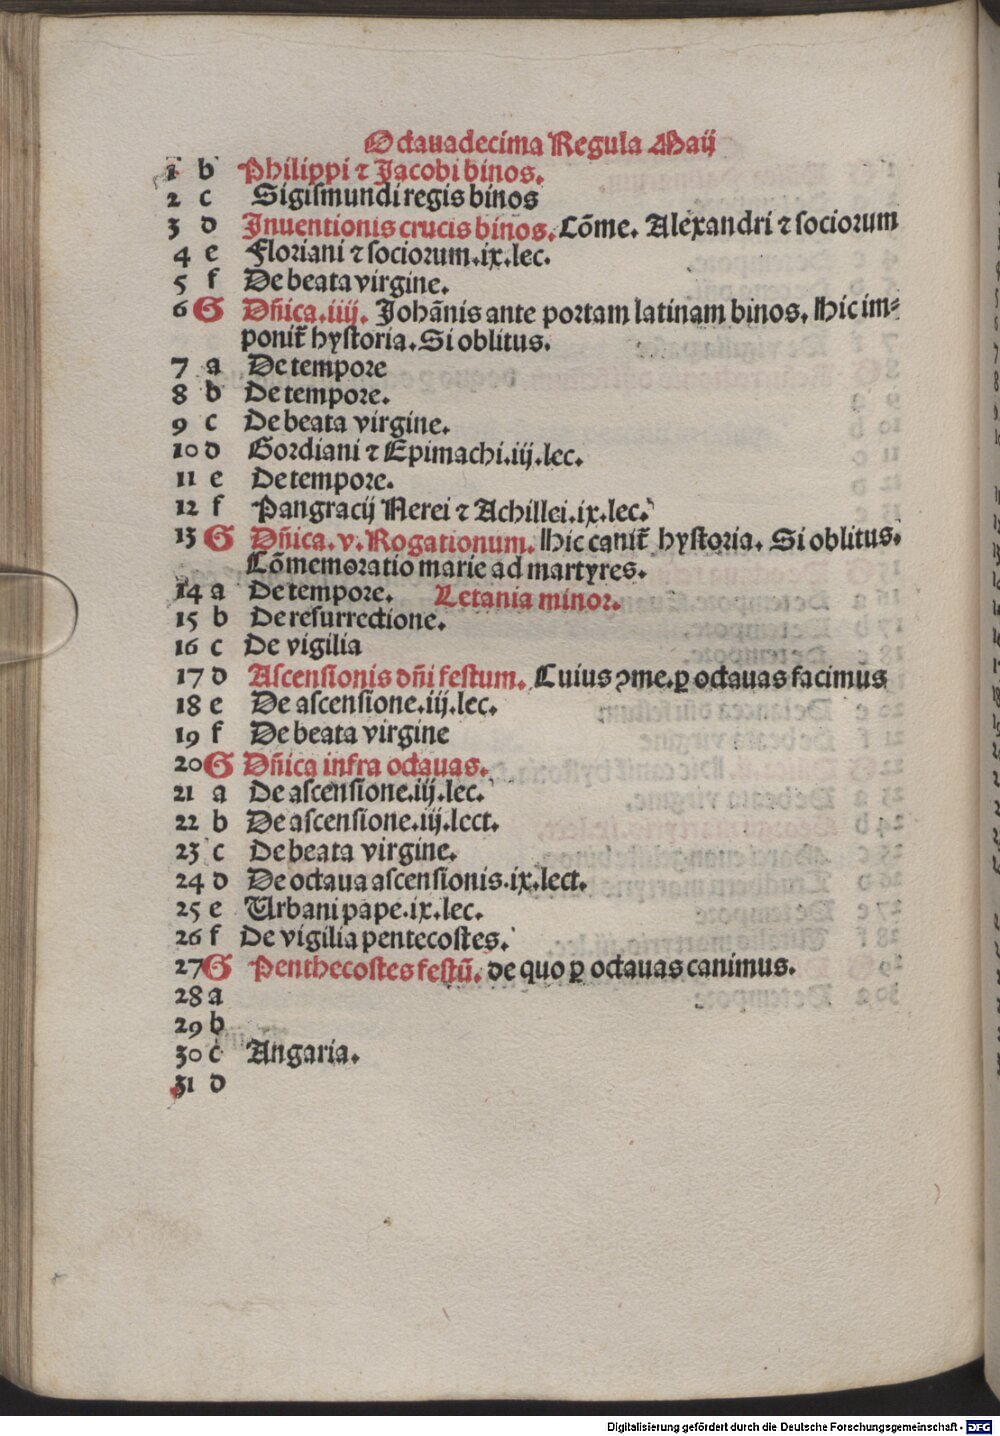 Octauadecima Regula Maij
1 b Philippi ⁊ Jacobi binos.
2 c Sigismundi regis binos
3 d Inuentionis crucis binos. Cōme. Alexandri ⁊ sociorum
4 e Floriani ⁊ sociorum.ix.lec.
5 f De beata virgine.
6 G Dñica.iiij. Johānis ante portam latinam binos. Hic im⸗
ponit̃ hystoria. Si oblitus.
7 a De tempore
8 b De tempore.
9 c De beata virgine.
10 d Gordiani ⁊ Epimachi.iij.lec.
11 e De tempore.
12 f Pangracij Nerei ⁊ Achillei.ix.lec.
13 G Dñica.v.Rogationum. Hic canit̃ hystoria. Si oblitus.
Cōmemoratio marie ad martyres.
14 a De tempore. Letania minor.
15 b De resurrectione.
16 c De vigilia
17 d Ascensionis dñi festum. Cuius ꝯme.ꝑ octauas facimus
18 e De ascensione.iij.lec.
19 f De beata virgine
20 G Dñica infra octauas.
21 a De ascensione.iij.lec.
22 b De ascensione.iij.lect.
23 c De beata virgine.
24 d De octaua ascensionis.ix.lect.
25 e Urbani pape.ix.lec.
26 f De vigilia pentecostes.
27 G Penthecostes festū. de quo ꝑ octauas canimus.
28 a
29 b
30 c Angaria.
31 d
Digitalisierung gefördert durch die Deutsche Forschungsgemeinschaft - DFG